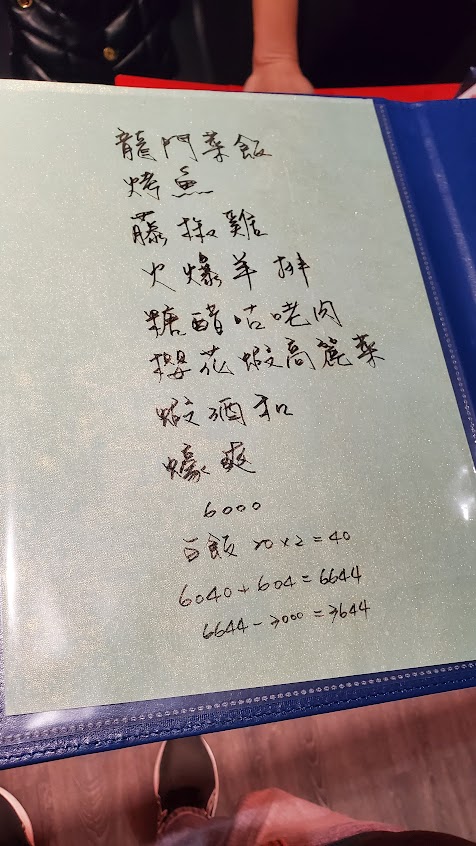 龍門菜飯
烤魚
藤椒雞
火爆羊排
糖醋咕咾肉
櫻花蝦高麗菜
蝦酒和
蠔爽
6000
白飯 20×2=40
6040+604=6644
6644-3000=3644